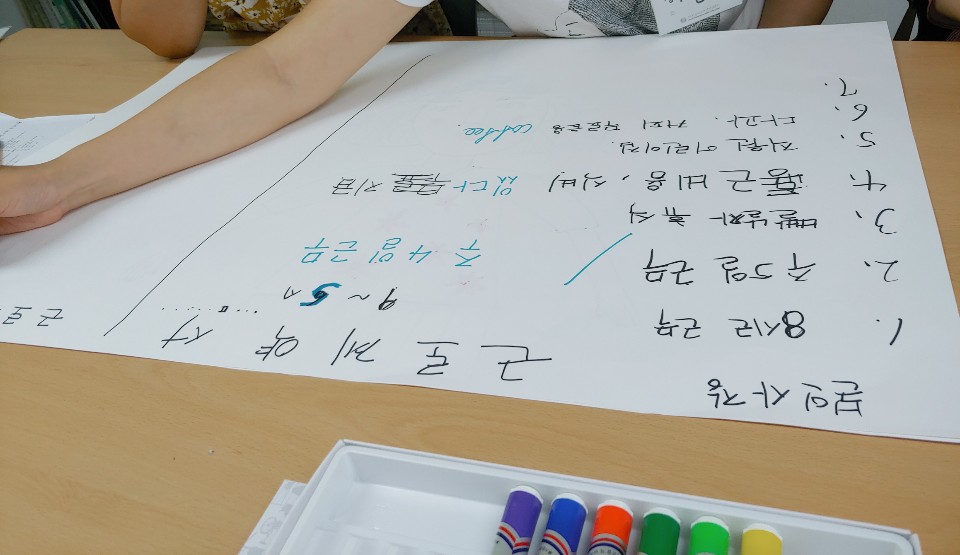 본인사장
근 로 계 약 서
1. 8시간 근무
9 ~ 5시
2. 주 5일 근무 / 주 4일 근무
3. 빨간날자 휴식
4. 통근비용, 식비 있다 지급
5. 직원 어린이집.
6. 다과. 커피 coffee.
7.
근로